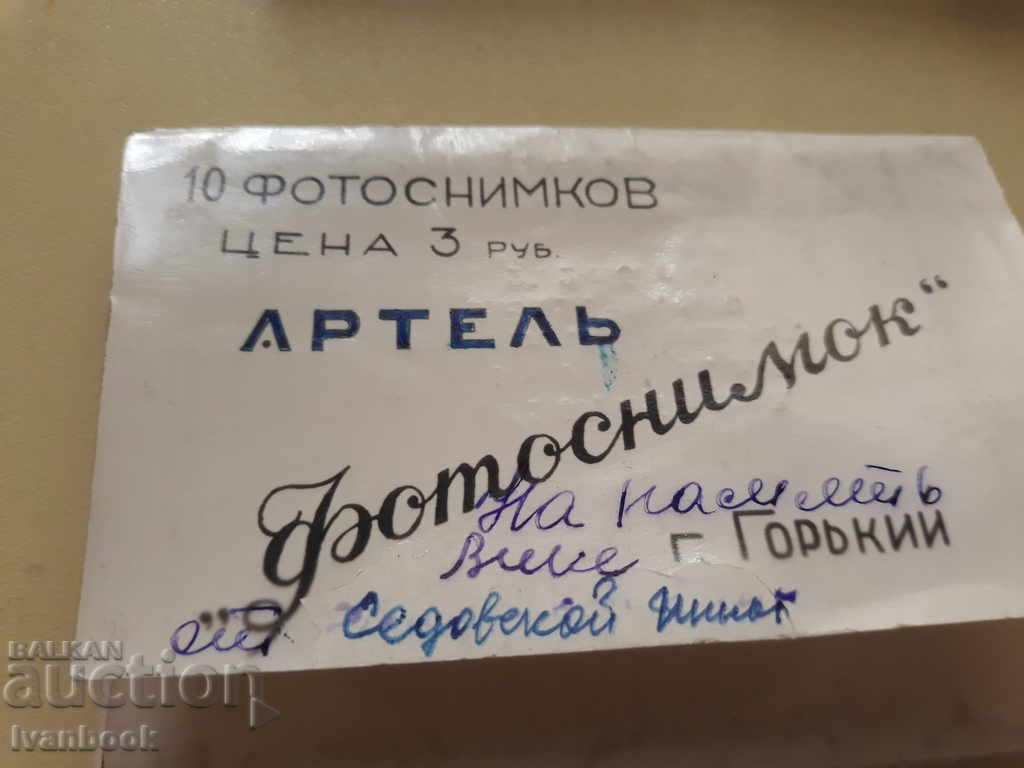 10 ФОТОСНИМКОВ
ЦЕНА 3 РУБ.
АРТЕЛЬ
"Фотоснимок"
г. Горький
На память
Вике
от Седовской
BALKAN
auction
Ivanbook